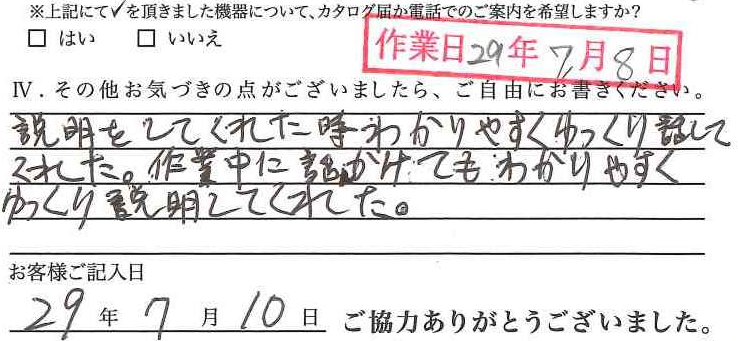 ※上記にて✓を頂きました機器について、カタログ届か電話でのご案内を希望しますか?
□ はい □ いいえ
作業日29年7月8日
Ⅳ.その他お気づきの点がございましたら、ご自由にお書きください。
説明をしてくれた時わかりやすくゆっくり話して
くれた。作業中に話しかけてもわかりやすく
ゆっくり説明してくれた。
お客様ご記入日
29年7月10日 ご協力ありがとうございました。